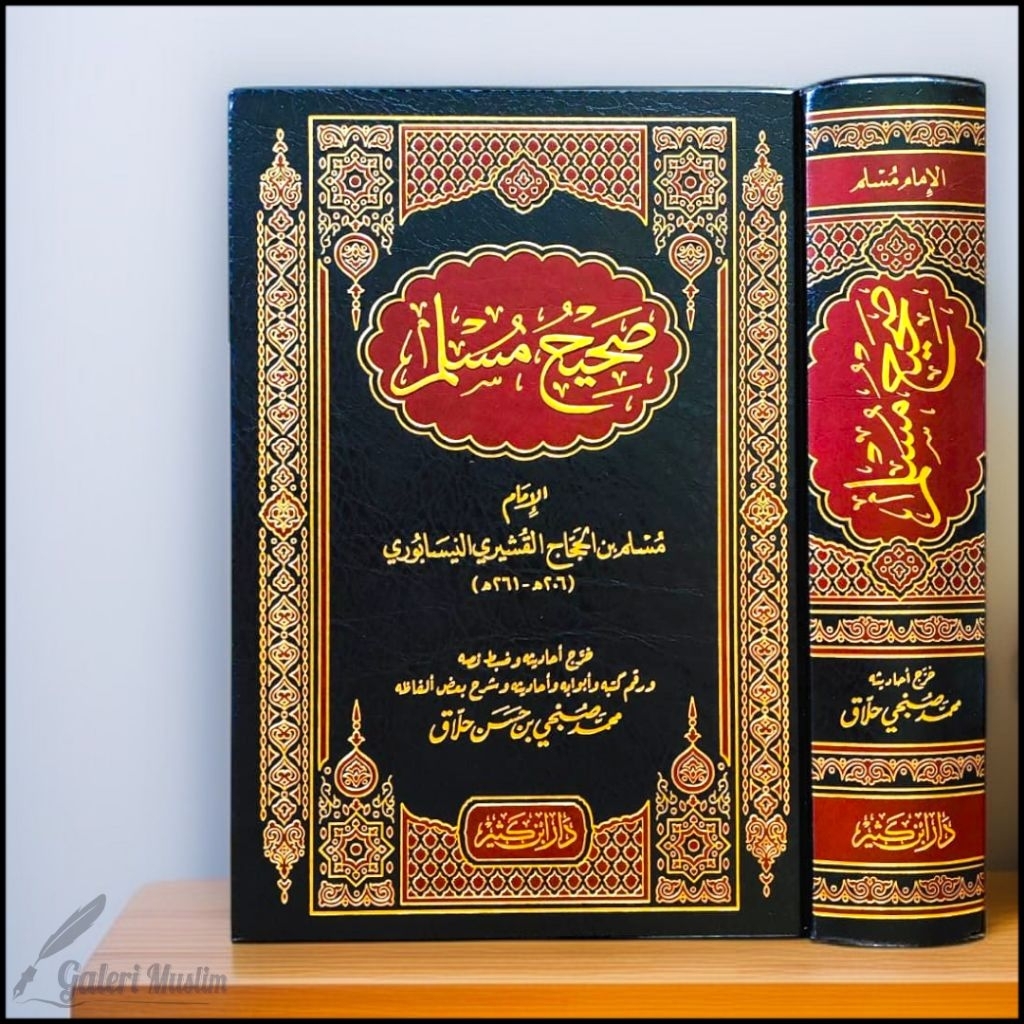 صَحِيحُ مُسْلِم
الإِمَام
مُسْلم بن الحَجّاج القُشيري النيسَابُوري
(٢٠٦هـ - ٢٦١هـ)
خرّج أحاديثه وضبط نصه
ورقم كتبه وأبوابه وأحاديثه وشرح بعض ألفاظه
محمّد صُبْحي بن حَسَن حلّاق
دَارُ ابْن كَثِير
الإِمَام مُسْلم
صَحِيحُ مُسْلِم
خرّج أحاديثه
محمّد صُبْحي حلّاق
دَارُ ابْن كَثِير
Galeri Muslim